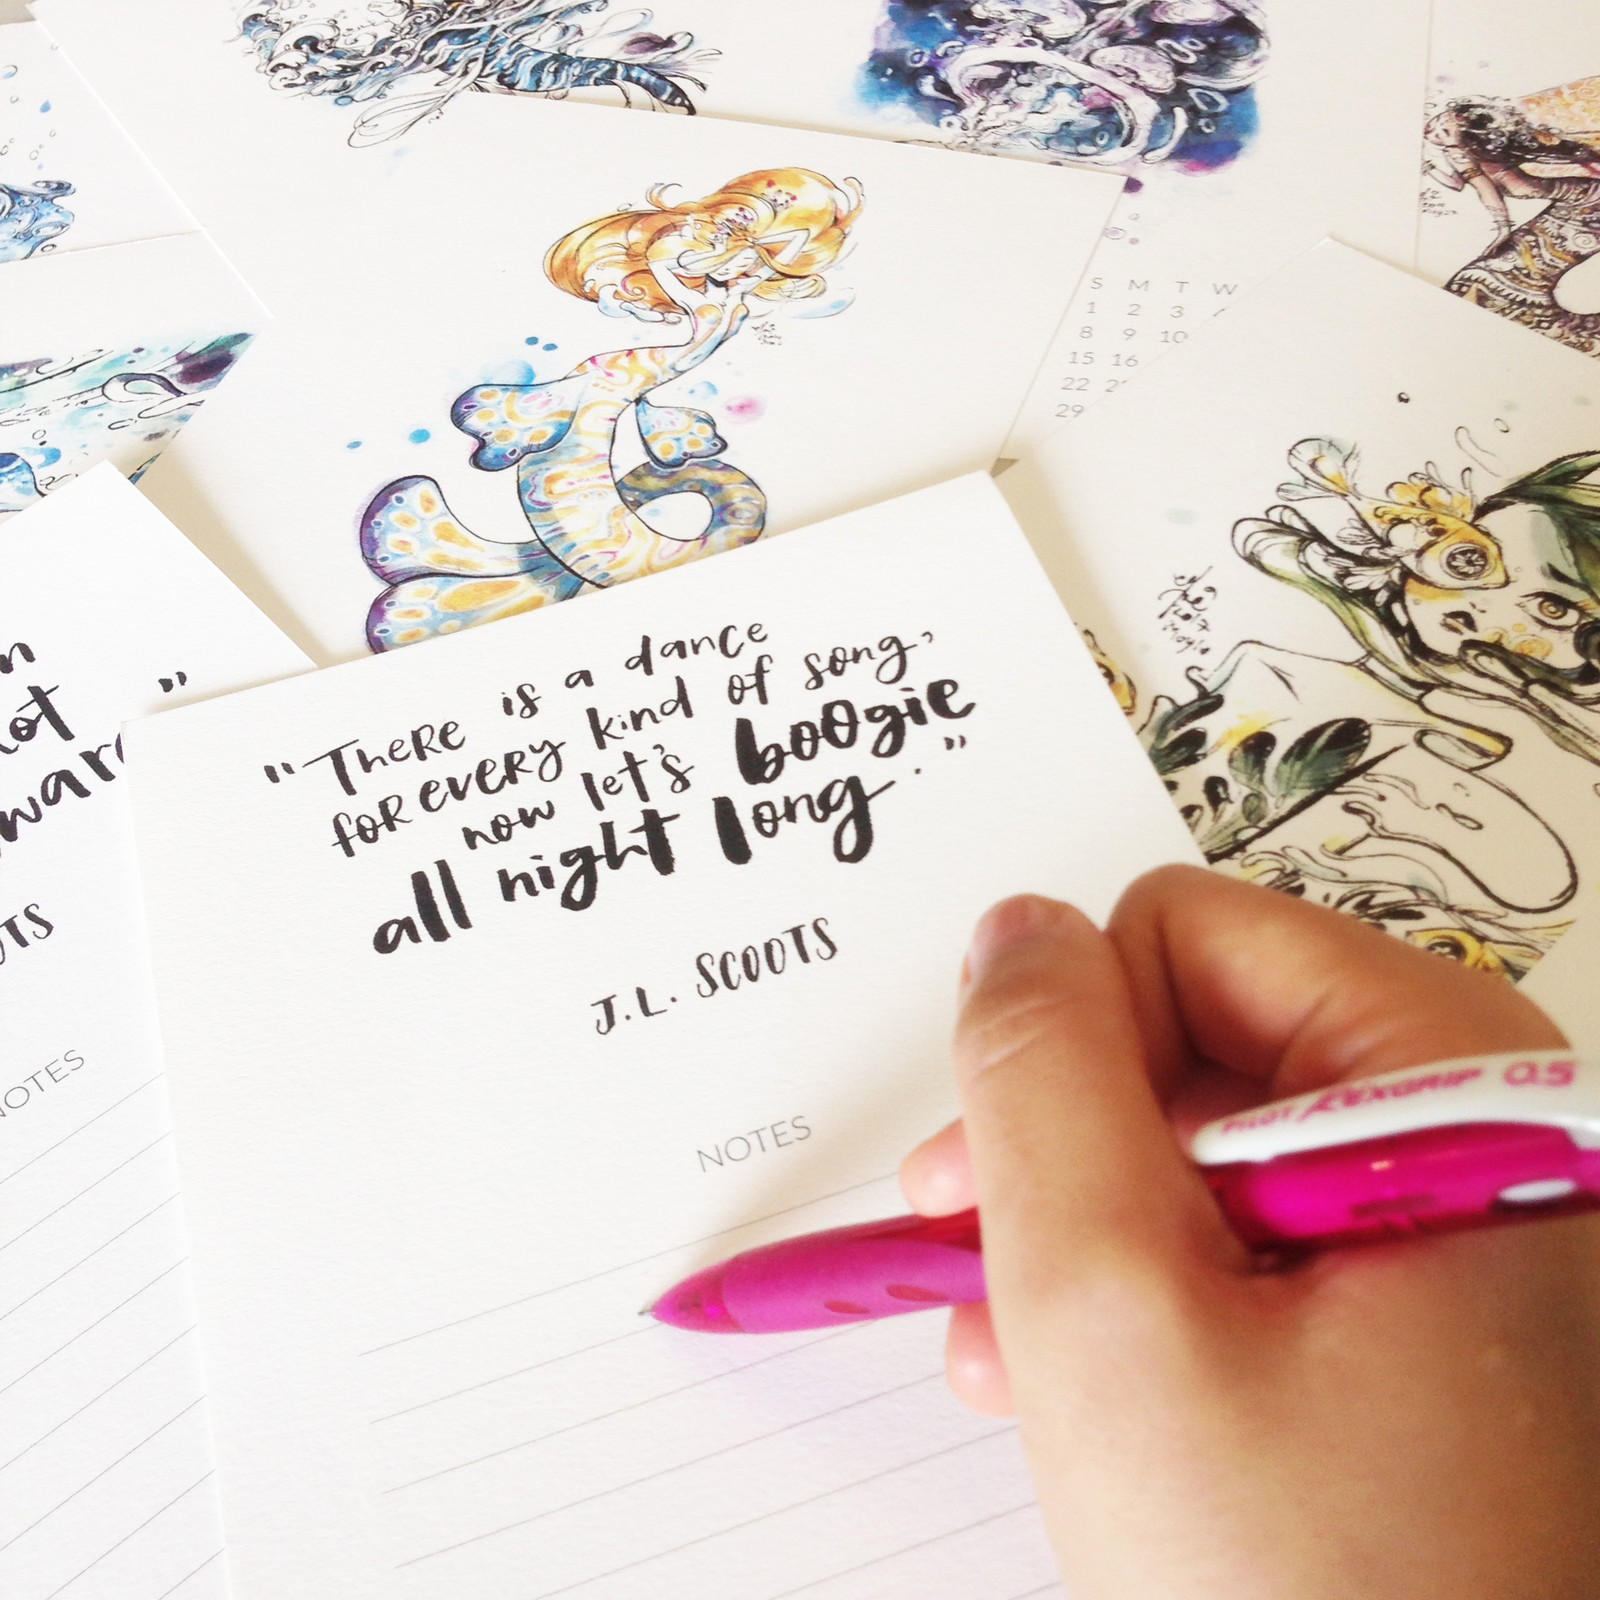 S M T W
1 2 3
8 9 10
15 16
22
29
"There is a dance
for every kind of song,
now let's boogie
all night long."
J.L. SCOOTS
NOTES
not
NOTES
PILOT REXGRIP 0.5